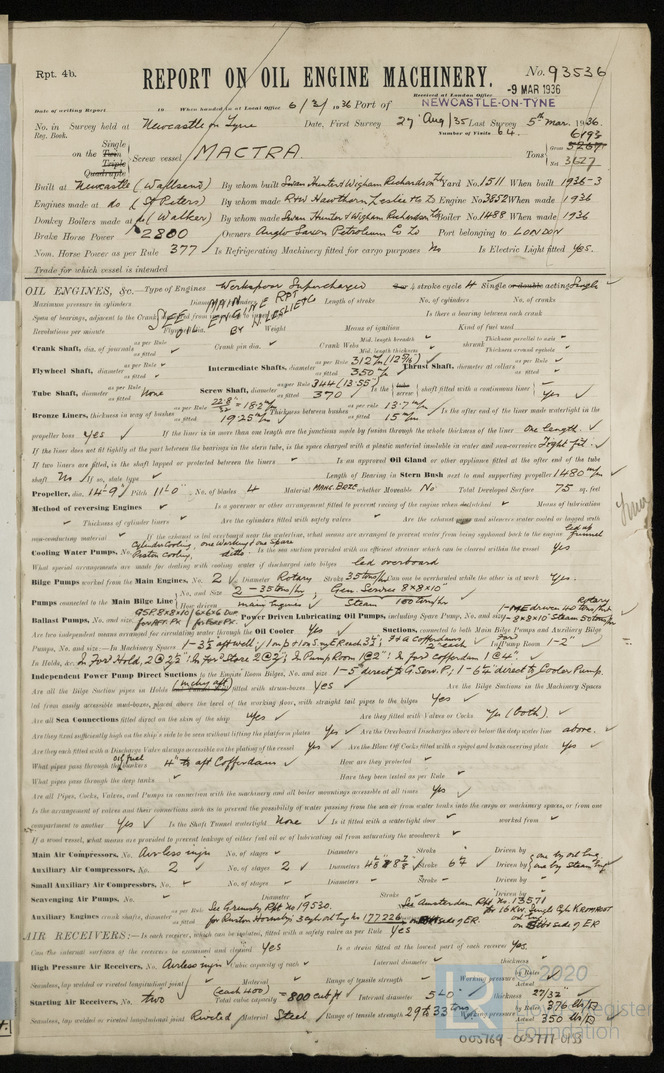 Rpt. 4b.
REPORT ON OIL ENGINE MACHINERY.
No. 93536
Received at London Office
-9 MAR 1936
Date of writing Report 19 When handed in at Local Office 6/3/1936 Port of NEWCASTLE-ON-TYNE
No. in Survey held at Newcastle on Tyne Date, First Survey 27 Aug/35 Last Survey 5th Mar. 1936.
Reg. Book. Number of Visits 64.
on the Single Twin Triple Quadruple Screw vessel MACTRA. Tons Gross 6193 Net 3627
Built at Newcastle (Wallsend) By whom built Swan Hunter & Wigham Richardson Ltd Yard No. 1511 When built 1936-3
Engines made at do (St Peters) By whom made R & W Hawthorn Leslie & Co Engine No. 3852 When made 1936
Donkey Boilers made at do (Walker) By whom made Swan Hunter & Wigham Richardson Ltd Boiler No. 1488 When made 1936
Brake Horse Power 2800 Owners Anglo Saxon Petroleum Co Ld Port belonging to LONDON
Nom. Horse Power as per Rule 377 Is Refrigerating Machinery fitted for cargo purposes No Is Electric Light fitted Yes.
Trade for which vessel is intended
OIL ENGINES, &c.—Type of Engines Werkspoor Supercharged 4 stroke cycle 4 Single or double acting Single
Maximum pressure in cylinders Length of stroke No. of cylinders No. of cranks
SEE MAIN ENGINE RPT BY H. LESLIE & Co
Is there a bearing between each crank
Revolutions per minute Weight Means of ignition Kind of fuel used
Crank Shaft, dia. of journals as per Rule as fitted Crank pin dia. Crank Webs Mid. length breadth Mid. length thickness shrunk Thickness parallel to axis Thickness around eyehole
Flywheel Shaft, diameter as per Rule as fitted Intermediate Shafts, diameter as per Rule 312 m/m as fitted 350 m/m Thrust Shaft, diameter at collars as per Rule as fitted
Tube Shaft, diameter as per Rule as fitted None Screw Shaft, diameter as per Rule 344 (13.55") as fitted 370 Is the tube screw shaft fitted with a continuous liner Yes
Bronze Liners, thickness in way of bushes as per Rule as fitted 19.25 m/m Thickness between bushes as per rule 13.7 m/m as fitted 15 m/m Is the after end of the liner made watertight in the
propeller boss Yes If the liner is in more than one length are the junctions made by fusion through the whole thickness of the liner One length.
If the liner does not fit tightly at the part between the bearings in the stern tube, is the space charged with a plastic material insoluble in water and non-corrosive Tight fit.
If two liners are fitted, is the shaft lapped or protected between the liners Is an approved Oil Gland or other appliance fitted at the after end of the tube
shaft No If so, state type Length of Bearing in Stern Bush next to and supporting propeller 1480 m/m
Propeller, dia. 14'-9" Pitch 11'-0" No. of blades 4 Material MANG. BRZE whether Moveable No Total Developed Surface 75 sq. feet
Method of reversing Engines Is a governor or other arrangement fitted to prevent racing of the engine when declutched Means of lubrication
Thickness of cylinder liners Are the cylinders fitted with safety valves Are the exhaust pipes and silencers water cooled or lagged with
non-conducting material If the exhaust is led overboard near the waterline, what means are arranged to prevent water being syphoned back to the engine Led up funnel
Cooling Water Pumps, No. Cylinder Cooling, one working, one spare Piston cooling, ditto. Is the sea suction provided with an efficient strainer which can be cleared within the vessel Yes
What special arrangements are made for dealing with cooling water if discharged into bilges led overboard
Bilge Pumps worked from the Main Engines, No. 2 Diameter Rotary Stroke 35 tons/hr Can one be overhauled while the other is at work Yes.
Pumps connected to the Main Bilge Line No. and Size 2-35 tons/hr Gen. Service 8x8x10 How driven main Engines Steam
Ballast Pumps, No. and size, Power Driven Lubricating Oil Pumps, including Spare Pump, No. and size,
Are two independent means arranged for circulating water through the Oil Cooler Yes Suctions, connected to both Main Bilge Pumps and Auxiliary Bilge
Pumps, No. and size:—In Machinery Spaces In Pump Room 1-2"
In Holds, &c. In For'd Hold, 2@2½": In For'd Store 2@2": In Pump Room 1@2": In for'd cofferdam 1@4"
Independent Power Pump Direct Suctions to the Engine Room Bilges, No. and size 1-5" direct to G. Serv. P; 1-6½" direct to Cooler Pump.
Are all the Bilge Suction pipes in Holds fitted with strum-boxes Yes Are the Bilge Suctions in the Machinery Spaces
led from easily accessible mud-boxes, placed above the level of the working floor, with straight tail pipes to the bilges Yes
Are all Sea Connections fitted direct on the skin of the ship Yes Are they fitted with Valves or Cocks Yes (both).
Are they fixed sufficiently high on the ship's side to be seen without lifting the platform plates Yes Are the Overboard Discharges above or below the deep water line above.
Are they each fitted with a Discharge Valve always accessible on the plating of the vessel Yes Are the Blow Off Cocks fitted with a spigot and brass covering plate Yes
What pipes pass through the oil fuel bunkers 4" to aft Cofferdams How are they protected
What pipes pass through the deep tanks Have they been tested as per Rule
Are all Pipes, Cocks, Valves, and Pumps in connection with the machinery and all boiler mountings accessible at all times Yes
Is the arrangement of valves and their connections such as to prevent the possibility of water passing from the sea or from water tanks into the cargo or machinery spaces, or from one
compartment to another Yes Is the Shaft Tunnel watertight None Is it fitted with a watertight door worked from
If a wood vessel, what means are provided to prevent leakage of either fuel oil or of lubricating oil from saturating the woodwork
Main Air Compressors, No. Airless injn No. of stages Diameters Stroke Driven by
Auxiliary Air Compressors, No. 2 No. of stages 2 Diameters Stroke Driven by one by oil Eng one by steam Eng
Small Auxiliary Air Compressors, No. No. of stages Diameters Stroke Driven by
Scavenging Air Pumps, No. Diameter Stroke Driven by
Auxiliary Engines crank shafts, diameter as per Rule See Grimsby Rpt No 19530. See Amsterdam Rpt No. 13571
as fitted for Ruston Hornsby
AIR RECEIVERS:—Is each receiver, which can be isolated, fitted with a safety valve as per Rule Yes
Can the internal surfaces of the receivers be examined and cleaned Yes Is a drain fitted at the lowest part of each receiver Yes.
High Pressure Air Receivers, No. Airless injn Cubic capacity of each Internal diameter thickness
Seamless, lap welded or riveted longitudinal joint Material Range of tensile strength Working pressure by Rules Actual
Starting Air Receivers, No. two Total cubic capacity (each 400) = 800 cub ft Internal diameter 5'-0" thickness 27/32"
Seamless, lap welded or riveted longitudinal joint Riveted Material Steel Range of tensile strength 29 to 33 tons Working pressure by Rules 376 lbs/□ Actual 350 lbs/□
© 2020
Lloyd's Register
Foundation
003769-003777-0133